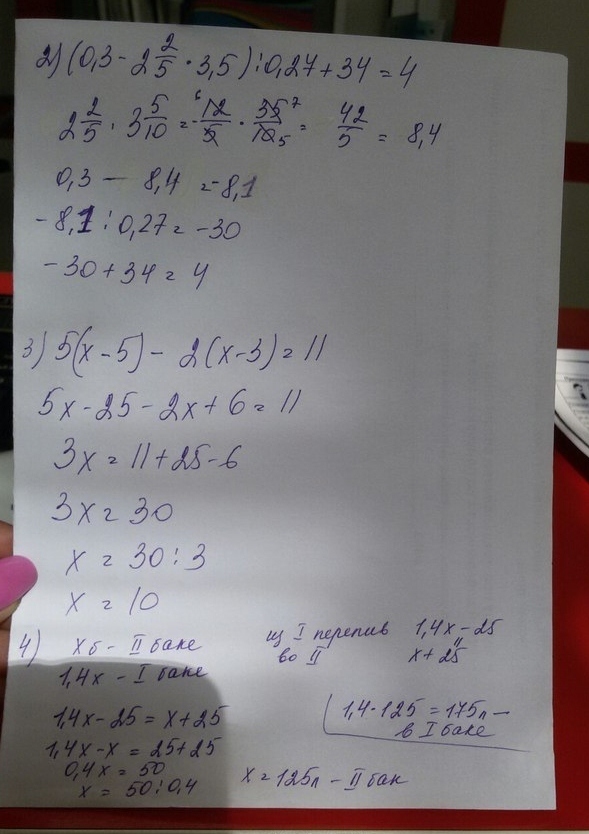 2) (0,3 - 2 2/5 · 3,5) : 0,27 + 34 = 4
2 2/5 · 3 5/10 = 12/5 · 35/10 = 42/5 = 8,4
0,3 - 8,4 = -8,1
-8,1 : 0,27 = -30
-30 + 34 = 4
3) 5(x - 5) - 2(x - 3) = 11
5x - 25 - 2x + 6 = 11
3x = 11 + 25 - 6
3x = 30
x = 30 : 3
x = 10
4) x б - II баке
1,4x - I баке
из I перелив 1,4x - 25
во II x + 25
1,4x - 25 = x + 25
1,4x - x = 25 + 25
0,4x = 50
x = 50 : 0,4
x = 125л - II бак
1,4 · 125 = 175л -
в I баке